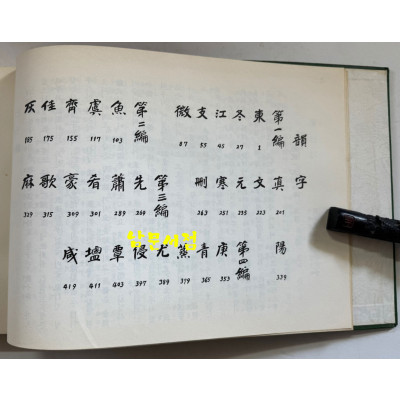 韻字
第一編
東 1
冬 27
江 45
支 55
微 87
第二編
魚 103
虞 117
齊
佳 175
灰 185
真 201
文 223
元 235
寒 251
删 263
第三編
先 269
蕭 289
肴 301
豪 309
歌 315
麻 329
陽 339
第四編
庚 353
青 365
蒸 379
尤 389
侵 397
覃 403
塩 411
咸 419